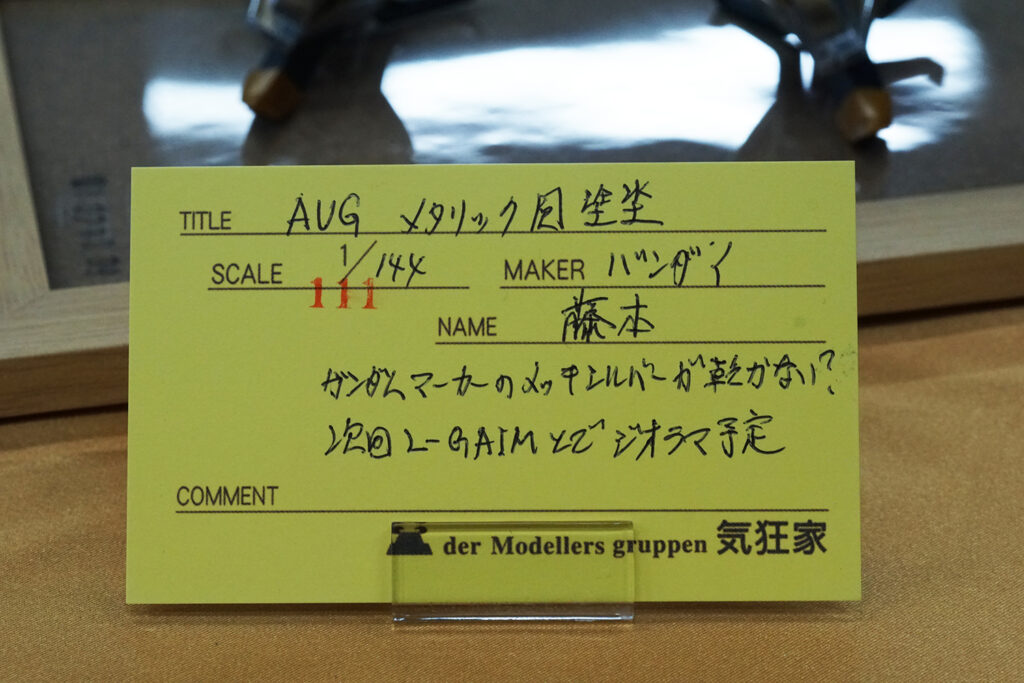 TITLE AUG メタリック風塗装
SCALE 1/144 MAKER バンダイ
111
NAME 藤本
ガンダムマーカーのメッキシルバーが乾かない?
次回 L-GAIMとでジオラマ予定
COMMENT
der Modellers gruppen 気狂家